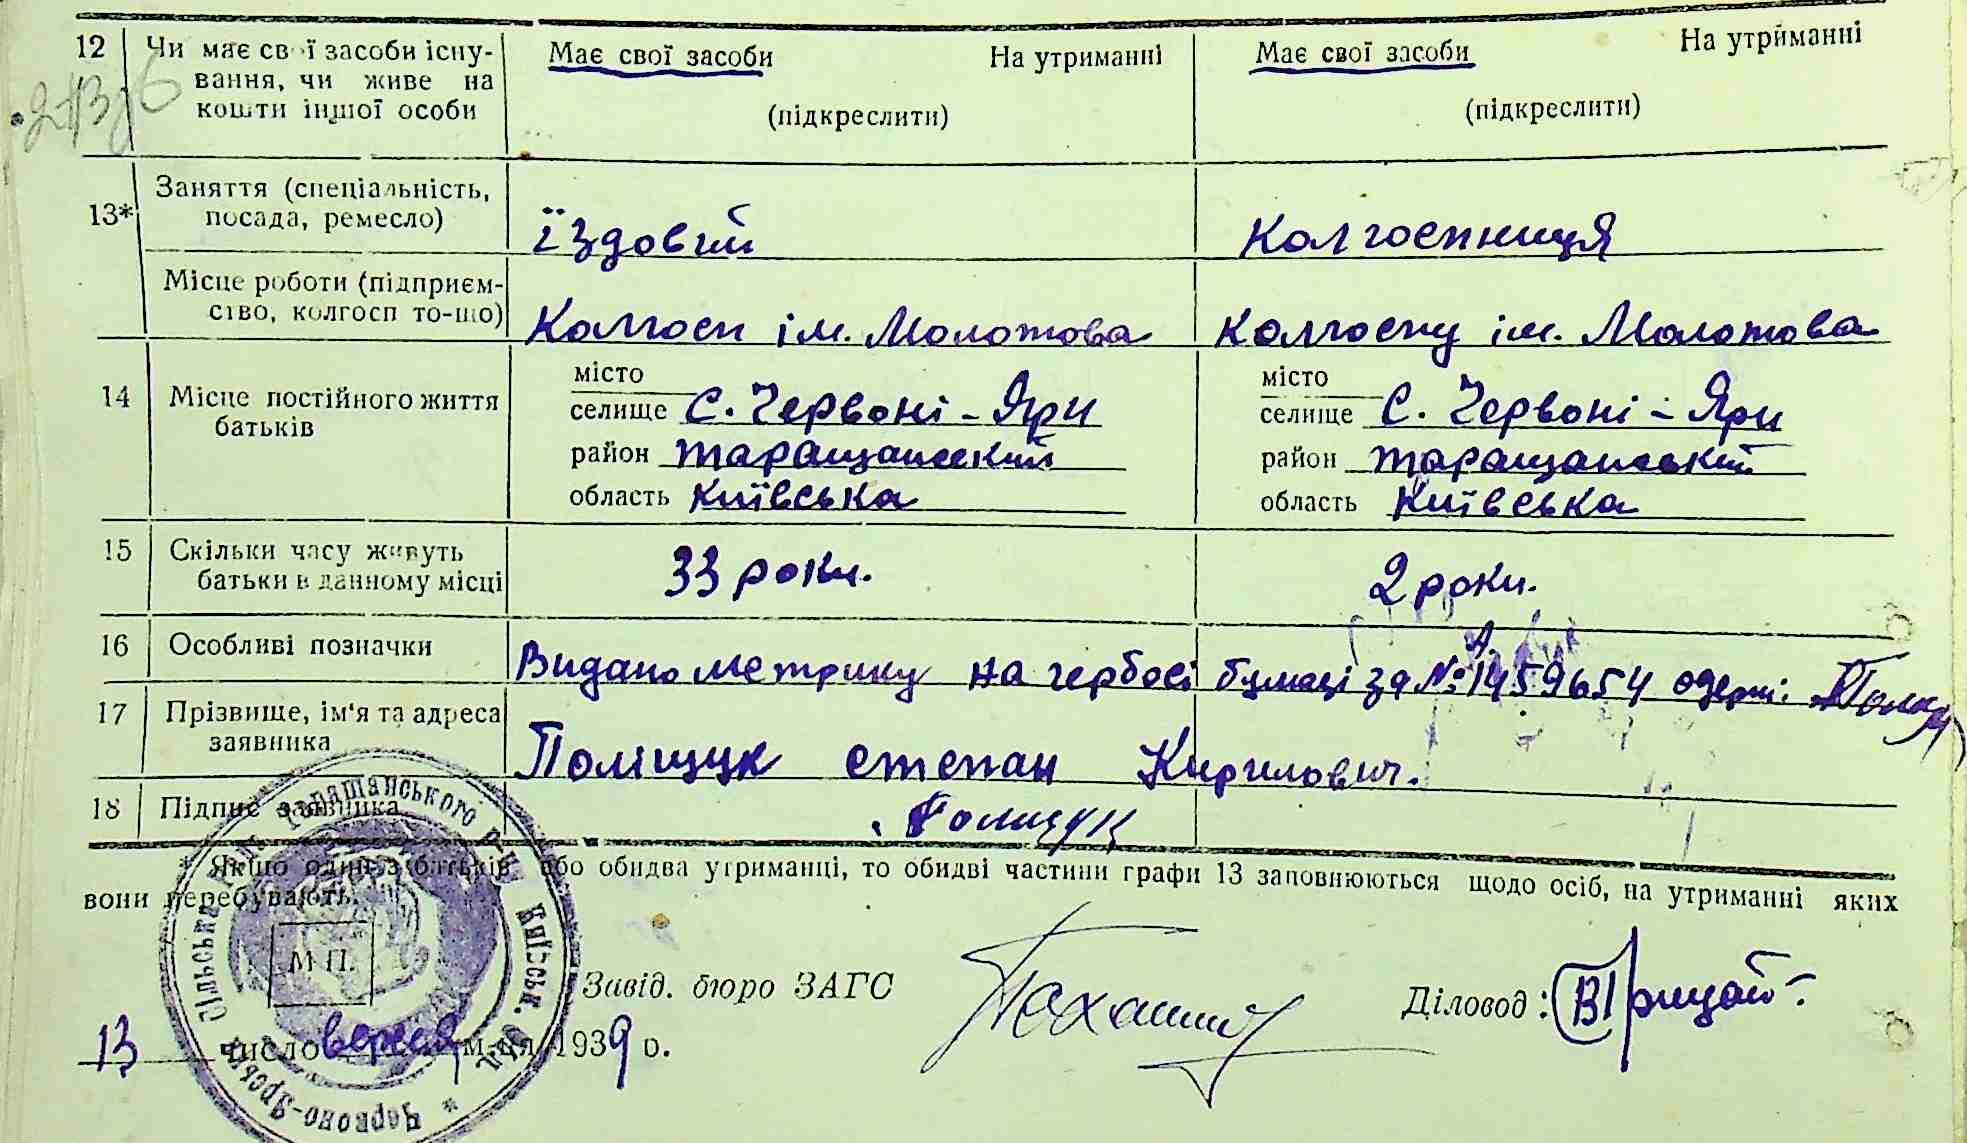 12 Чи має свої засоби існу- Має свої засоби На утриманні Має свої засоби На утриманні
вання, чи живе на
кошти іншої особи (підкреслити) (підкреслити)
13* Заняття (спеціальність,
посада, ремесло) їздовий Колгоспниця
Місце роботи (підприєм-
ство, колгосп то-що) Колгосп ім. Молотова Колгоспу ім. Молотова
14 Місце постійного життя
батьків
місто місто
селище С. Червоні-Яри селище С. Червоні-Яри
район Таращанський район Таращанський
область Київська область Київська
15 Скільки часу живуть
батьки в данному місці 33 роки. 2 роки.
16 Особливі позначки Видано метрику на гербові бумаці за № 1459654
17 Прізвище, ім'я та адреса
заявника Поліщук Степан Кирилович.
18 Підпис заявника Полищук
* Якщо один з батьків або обидва утриманці, то обидві частини графи 13 заповнюються щодо осіб, на утриманні яких
вони перебувають.
М П.
Завід. бюро ЗАГС
Діловод:
13 число вересня м-ця 1939 о.
Сільська Рада Таращанського р-ну Київськ. обл. * Червоно-Ярська